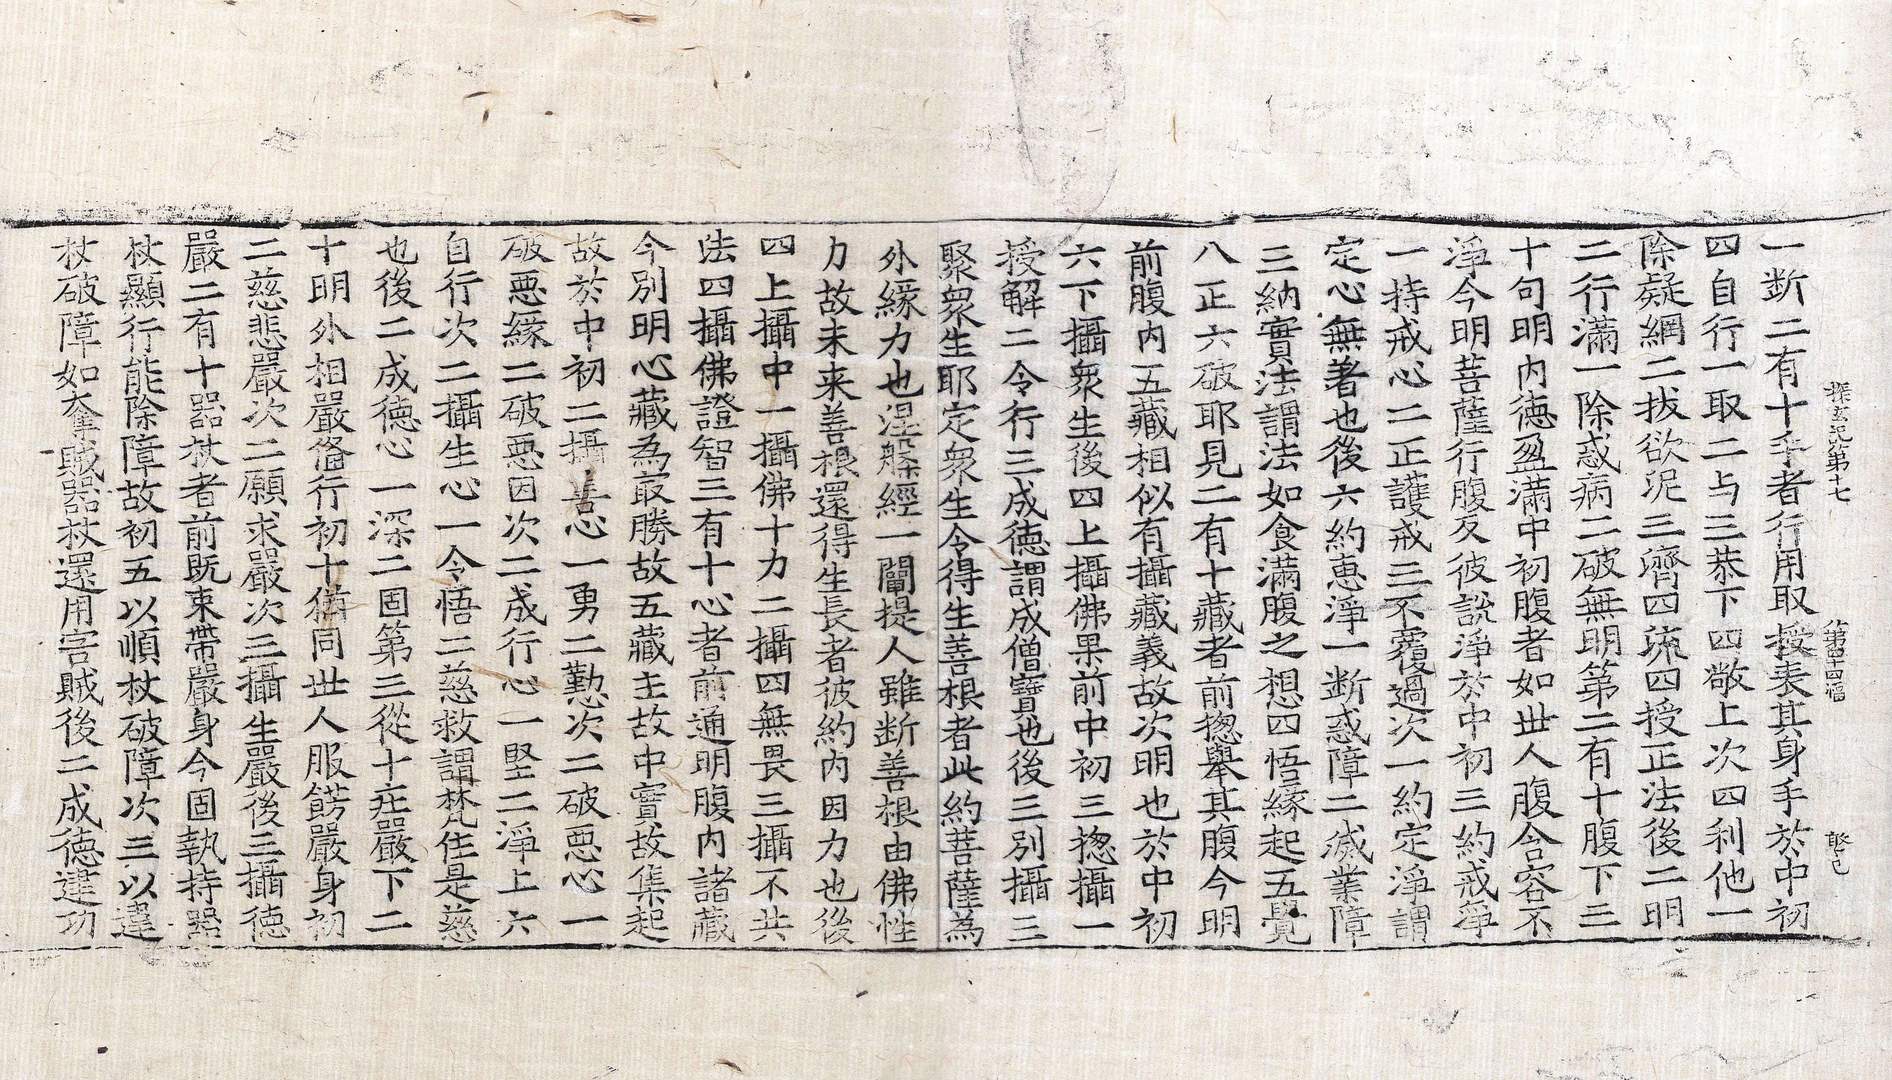 探玄記第十七 第四十四幅 㱏已
一断二有十手者行用取授表其身手於中初
四自行一取二与三恭下四敬上次四利他一
除疑網二拔欲泥三濟四流四授正法後二明
二行滿一除惑病二破無明第二有十腹下三
十句明內德盈滿中初腹者如世人腹含容不
淨今明菩薩行腹反彼說淨於中初三約戒淨
一持戒心二正護戒三不覆過次一約定淨謂
定心無著也後六約惠淨一断惑障二滅業障
三納實法謂法如食滿腹之想四悟緣起五覺
八正六破耶見二有十藏者前揔舉其腹今明
前腹內五藏相似有攝藏義故次明也於中初
六下攝衆生後四上攝佛果前中初三揔攝一
授解二令行三成德謂成僧寶也後三別攝三
聚衆生耶定衆生令得生善根者此約菩薩為
外緣力也涅槃經一闡提人雖断善根由佛性
力故未来善根還得生長者彼約內因力也後
四上攝中一攝佛十力二攝四無畏三攝不共
法四攝佛證智三有十心者前通明腹內諸藏
今別明心藏為最勝故五藏主故中實故集起
故於中初二攝善心一勇二勤次二破惡心一
破惡緣二破惡因次二成行心一堅二淨上六
自行次二攝生心一令悟二慈救謂梵住是慈
也後二成德心一深二固第三從十莊嚴下二
十明外相嚴俻行初十猶同世人服餝嚴身初
二慈悲嚴次二願求嚴次三攝生嚴後三攝德
嚴二有十器杖者前既束帶嚴身今固執持器
杖顯行能除障故初五以順杖破障次三以違
杖破障如奪賊器杖還用害賊後二成德違功